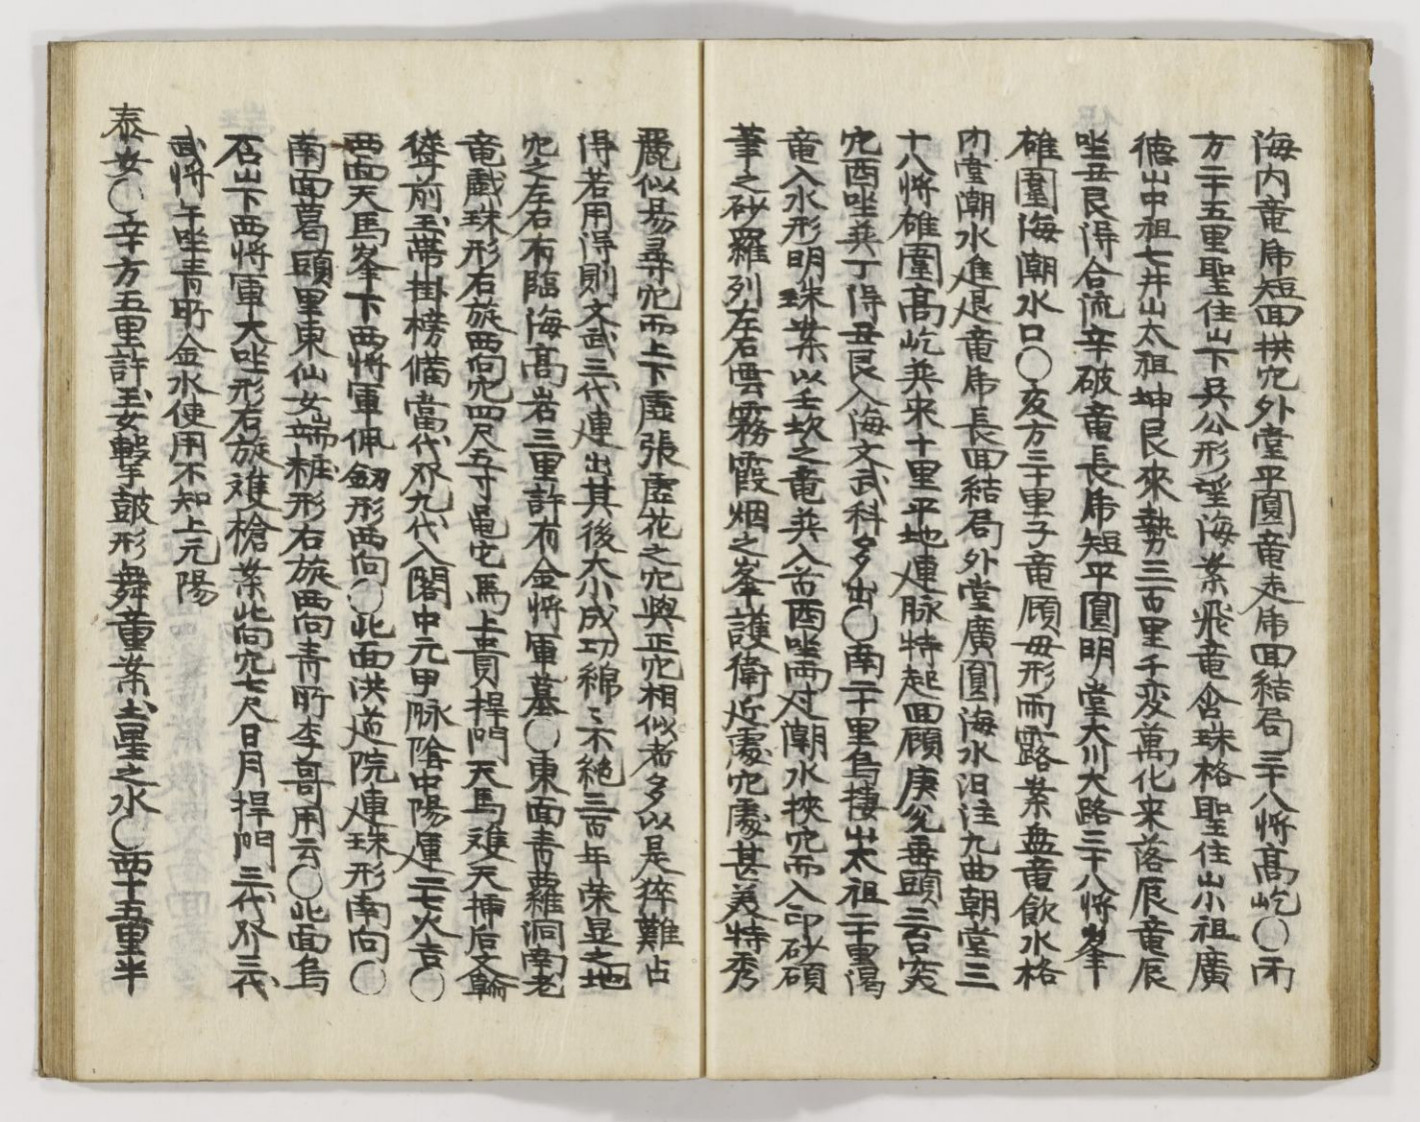 海内竜席短回拱穴外堂平圓竜走席回結局三十八將高屹〇丙
方二十五里聖住山下吳公形望海案飛竜含珠格聖住山小祖廣
德山中祖七井山太祖坤艮來勢三百里千変萬化来落辰竜辰
坐丑艮淂合流辛破竜長席短平圓明堂大川大路三十八將峯
雄圍海潮水口〇亥方三十里子竜顧母形雨露案盘竜飮水格
內堂潮水進退竜席長回結局外堂廣圓海水汨注九曲朝堂三
十八將雄圍高屹兼來十里平地連脉特起回顧庚兌垂頭三台突
穴酉坐兼丁淂丑艮入海文武科多出〇南二十里烏棲山太祖二十里渴
竜入水形明珠案以壬坎之竜兼入首酉坐両过潮水挾穴而入印砂碩
筆之砂羅列左右雲霧霞烟之峯護衛近處穴處甚美特秀
麗似易尋穴而上下虛張虛花之穴與正穴相似者多以是猝難占
淂若用淂則文武三代連出其後大小成功綿〻不絕三百年荣显之地
穴之左右有臨海高岩三里許有金將軍墓〇東面靑蘿洞南老
竜戱珠形右旋西向穴四尺五寸黾屯馬上貴捍門天馬雉天揷后文翰
聳前玉帶掛榜備當代外九代入閣中元甲脉陰中陽運二七火吉〇
西面天馬峯下西將軍佩劒形西向〇北面洪道院連珠形南向〇
南面葛頭里東仙女端粧形右旋西向靑所李哥用云〇北面烏
石山下西將軍大坐形右旋雉槍案北向穴七尺日月捍門三代外三代
武將午坐靑所金水使用不知上元陽
泰安〇辛方五里許玉女擊鼓形舞童案土星之水〇西十五里半